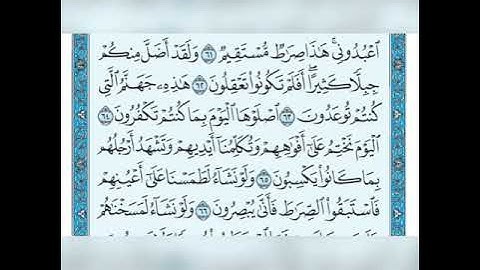 ٱعْبُدُونِي ۚ هَٰذَا صِرَٰطٌ مُّسْتَقِيمٌ ٦١ وَلَقَدْ أَضَلَّ مِنكُمْ
جِبِلًّا كَثِيرًا ۖ أَفَلَمْ تَكُونُوا۟ تَعْقِلُونَ ٦٢ هَٰذِهِۦ جَهَنَّمُ ٱلَّتِى
كُنتُمْ تُوعَدُونَ ٦٣ ٱصْلَوْهَا ٱلْيَوْمَ بِمَا كُنتُمْ تَكْفُرُونَ ٦٤
ٱلْيَوْمَ نَخْتِمُ عَلَىٰٓ أَفْوَٰهِهِمْ وَتُكَلِّمُنَآ أَيْدِيهِمْ وَتَشْهَدُ أَرْجُلُهُم
بِمَا كَانُوا۟ يَكْسِبُونَ ٦٥ وَلَوْ نَشَآءُ لَطَمَسْنَا عَلَىٰٓ أَعْيُنِهِمْ
فَٱسْتَبَقُوا۟ ٱلصِّرَٰطَ فَأَنَّىٰ يُبْصِرُونَ ٦٦ وَلَوْ نَشَآءُ لَمَسَخْنَٰهُمْ